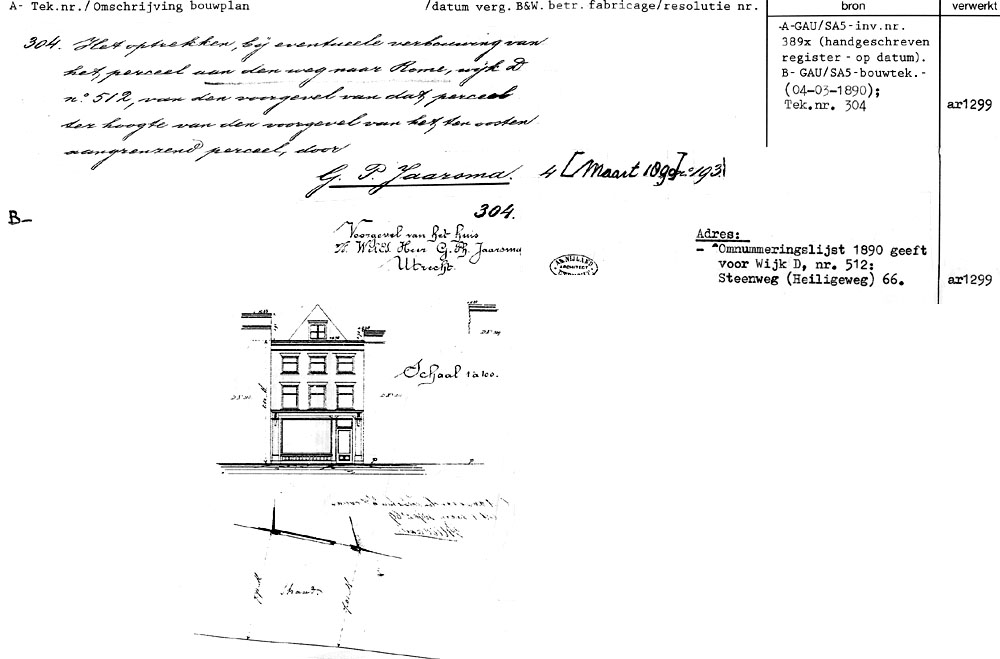 A- Tek.nr./Omschrijving bouwplan /datum verg. B&W. betr. fabricage/resolutie nr. bron verwerkt
304. Het optrekken, bij eventueele verbouwing van
het, perceel aan den weg naar Rome, wijk D
no 512, van den voorgevel van dat, perceel
ter hoogte van den voorgevel van het, ten oosten
aangrenzend perceel, door
G. P. Jaarsma. 4 [Maart 1890]
A-GAU/SA5-inv.nr.
389x (handgeschreven
register - op datum).
B- GAU/SA5-bouwtek.-
(04-03-1890);
Tek.nr. 304 ar1299
B-
304.
Voorgevel van het huis
Heer G. Ph. Jaarsma
Utrecht.
ARCHITECT
Adres:
- "Omnummeringslijst 1890 geeft
voor Wijk D, nr. 512:
Steenweg (Heiligeweg) 66. ar1299
Schaal 1 à 100.